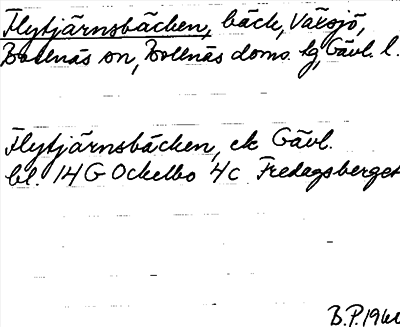 Flytjärnsbäcken, bäck, Växsjö,
Bollnäs sn, Bollnäs doms. tg, Gävl. l.
Flytjärnsbäcken, ek Gävl.
bl. 14 G Ockelbo 4c Fredagsberget
B.P.